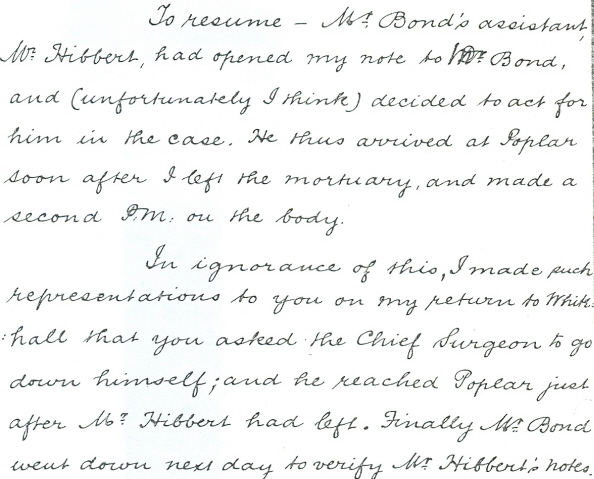 To resume – Mr. Bond's assistant,
Mr. Hibbert, had opened my note to Mr. Bond,
and (unfortunately I think) decided to act for
him in the case. He thus arrived at Poplar
soon after I left the mortuary, and made a
second P.M. on the body.
In ignorance of this, I made such
representations to you on my return to White:
:hall that you asked the Chief Surgeon to go
down himself; and he reached Poplar just
after Mr. Hibbert had left. Finally Mr. Bond
went down next day to verify Mr. Hibbert's notes.